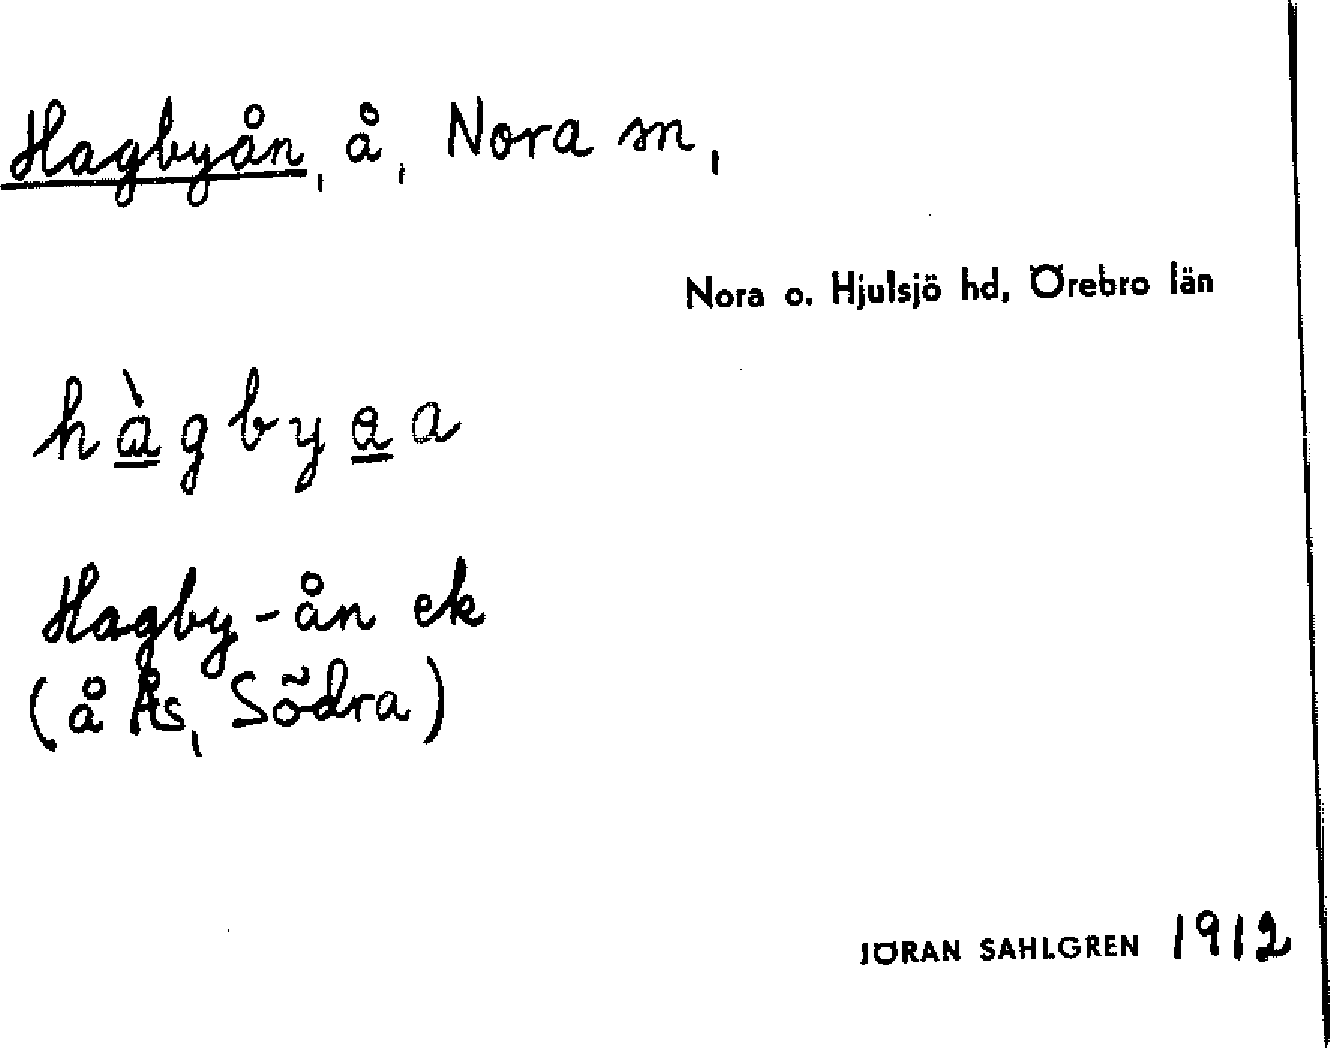 Hagbyån, å, Nora sn,
Nora o. Hjulsjö hd, Örebro län
hàgbyåa
Hagby-ån ek
(å Ås, Södra)
JÖRAN SAHLGREN 1912